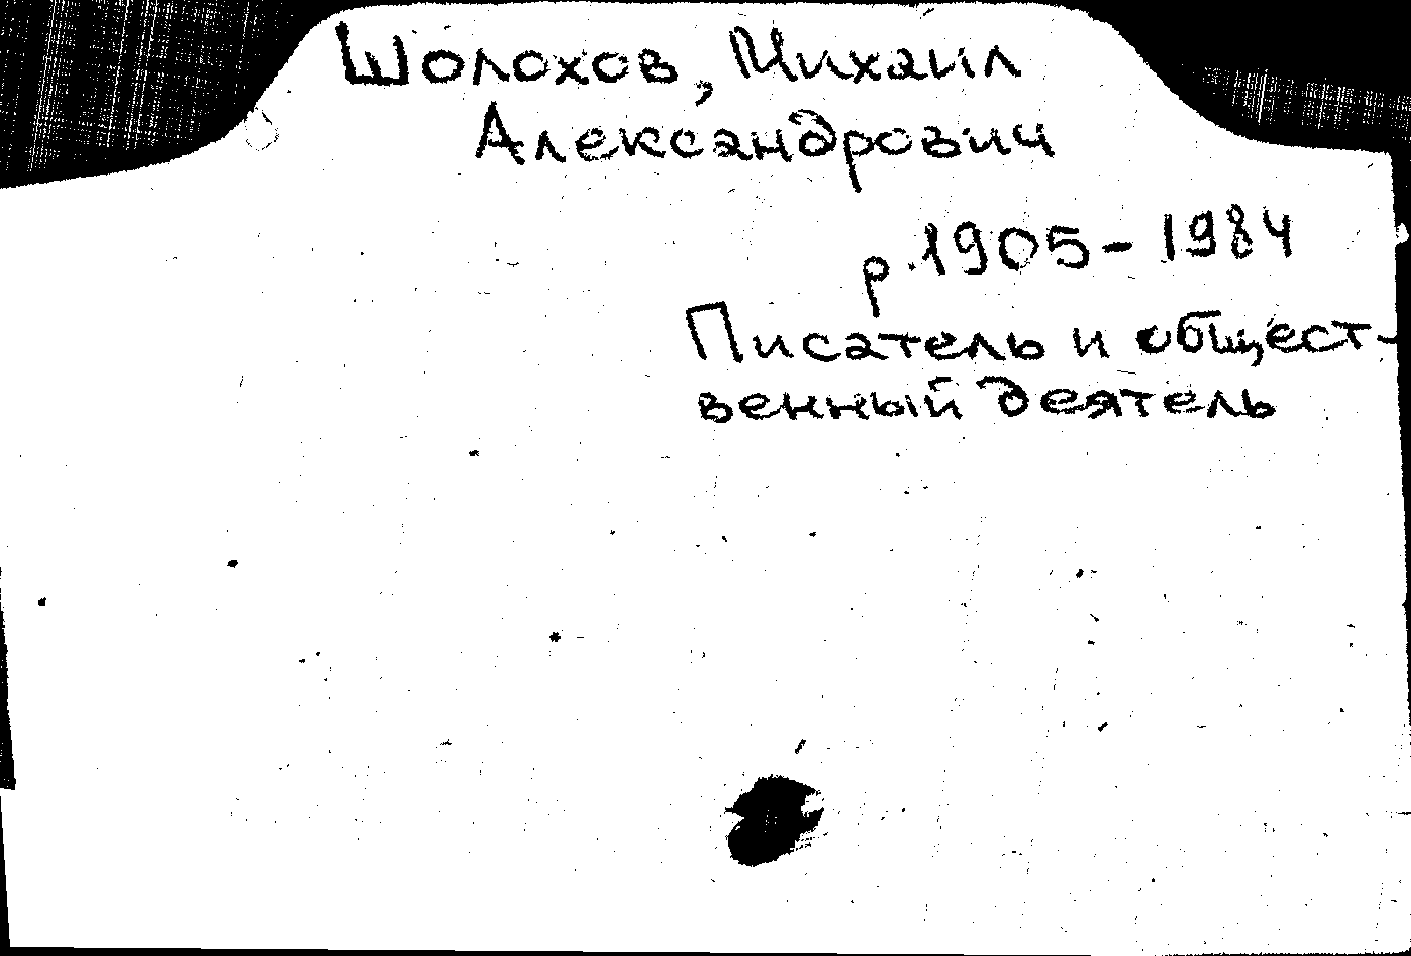 Шолохов, Михаил
Александрович
р. 1905 - 1984
Писатель и общест-
венный деятель